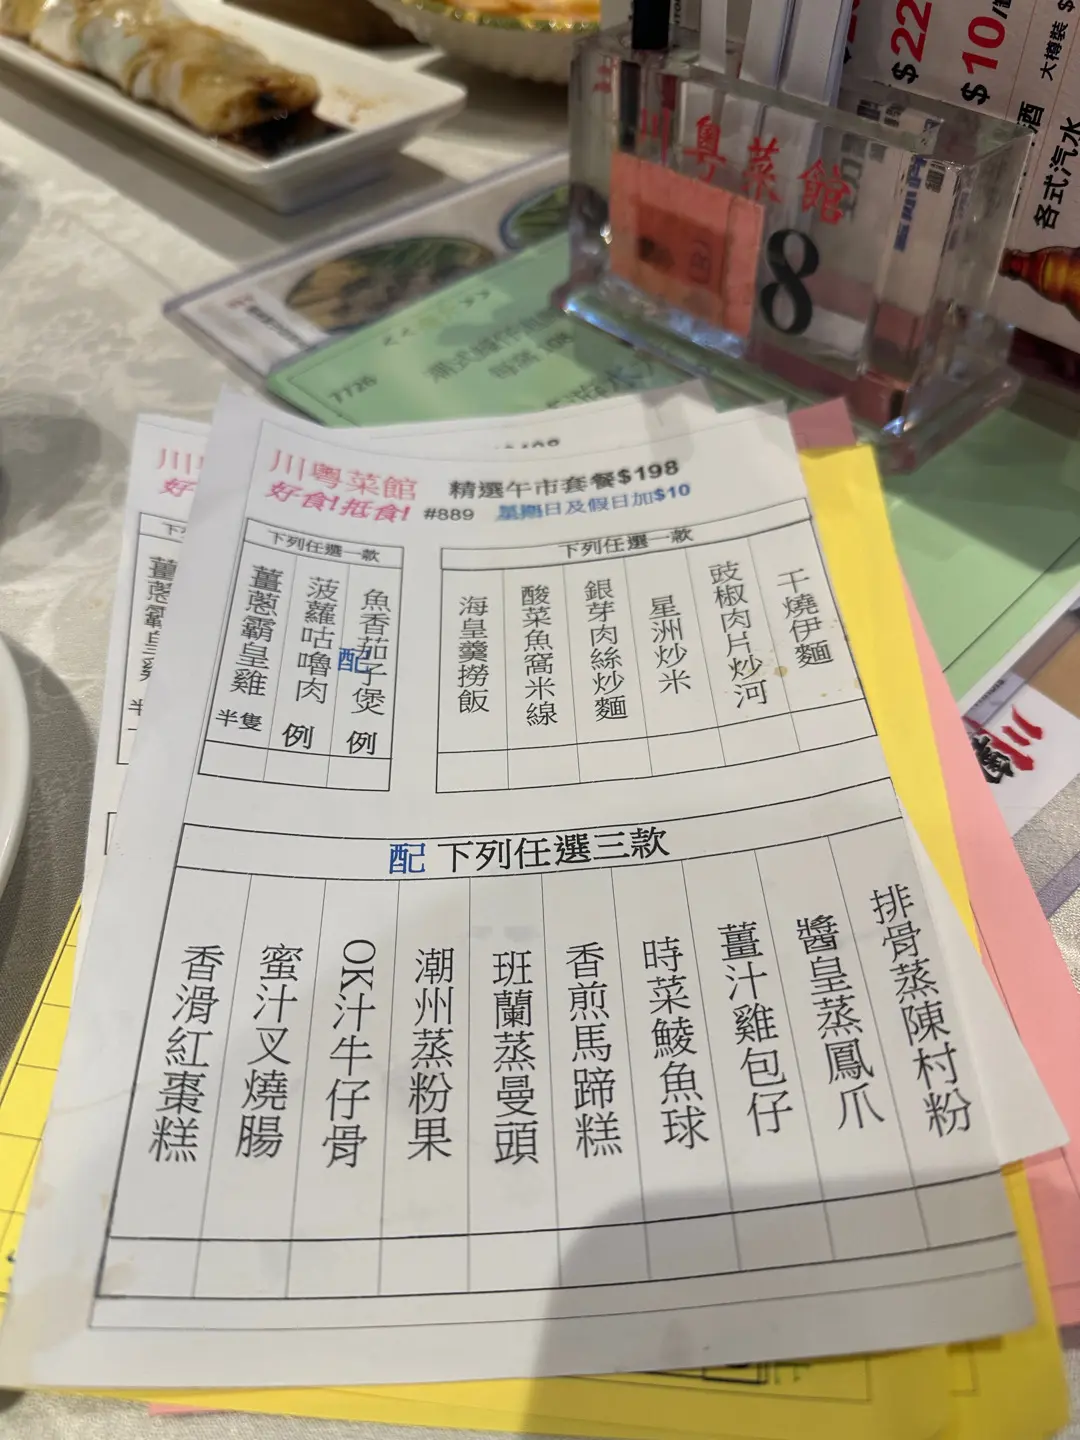 $22
$10/
大樽裝 $
酒
各式汽水
川粵菜館
8
7726
川粵菜館
好食!抵食!
精選午市套餐$198
#889 星期日及假日加$10
下列任選一款
薑蔥霸皇雞 半隻
菠蘿咕嚕肉 例
魚香茄子煲 例
配
下列任選一款
海皇羹撈飯
酸菜魚窩米線
銀芽肉絲炒麵
星洲炒米
豉椒肉片炒河
干燒伊麵
配 下列任選三款
香滑紅棗糕
蜜汁叉燒腸
OK汁牛仔骨
潮州蒸粉果
班蘭蒸曼頭
香煎馬蹄糕
時菜鯪魚球
薑汁雞包仔
醬皇蒸鳳爪
排骨蒸陳村粉
川
好
下
薑蔥霸皇雞
半